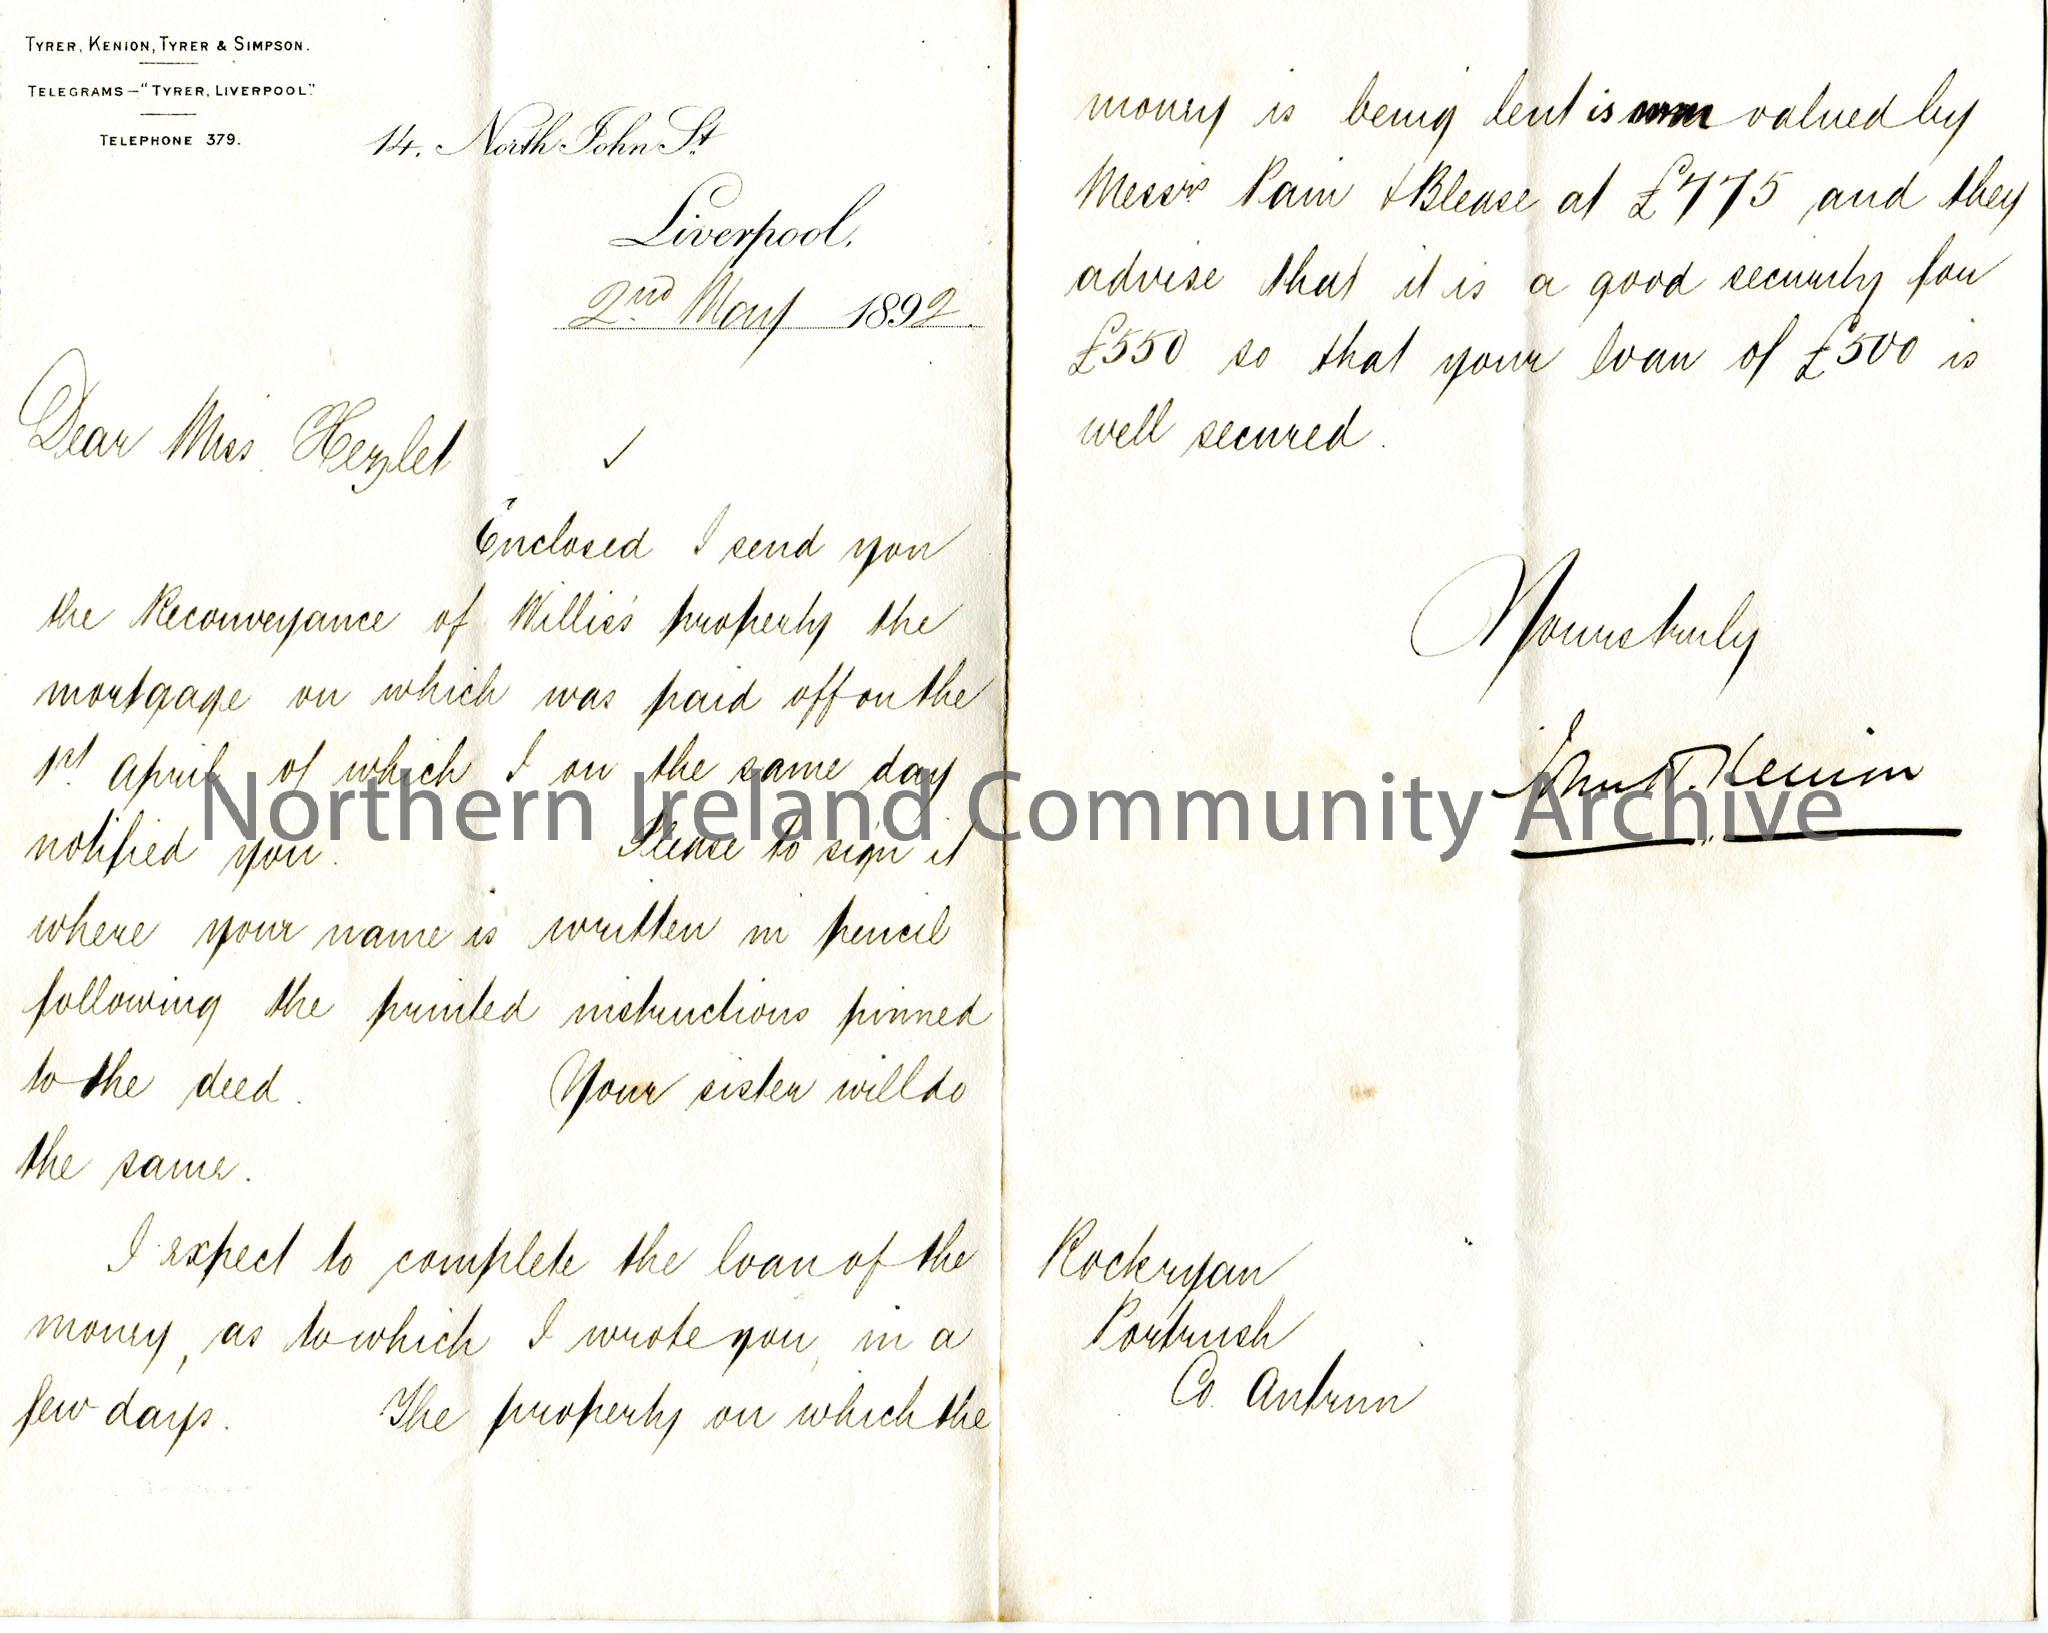 TYRER, KENION, TYRER & SIMPSON.
TELEGRAMS—"TYRER, LIVERPOOL."
TELEPHONE 379.
14, North John St
Liverpool,
2nd May 1892.
Dear Miss Hezlet
Enclosed I send you
the Reconveyance of Willis's property the
mortgage on which was paid off on the
1st April of which I on the same day
notified you. Please to sign it
where your name is written in pencil
following the printed instructions pinned
to the deed. Your sister will do
the same.
I expect to complete the loan of the
money, as to which I wrote you, in a
few days. The property on which the
money is being lent is valued by
Messrs Pain & Blease at £775 and they
advise that it is a good security for
£550 so that your loan of £500 is
well secured.
Yours truly
John Kenion
Rockryan
Portrush
Co. Antrim
Northern Ireland Community Archive